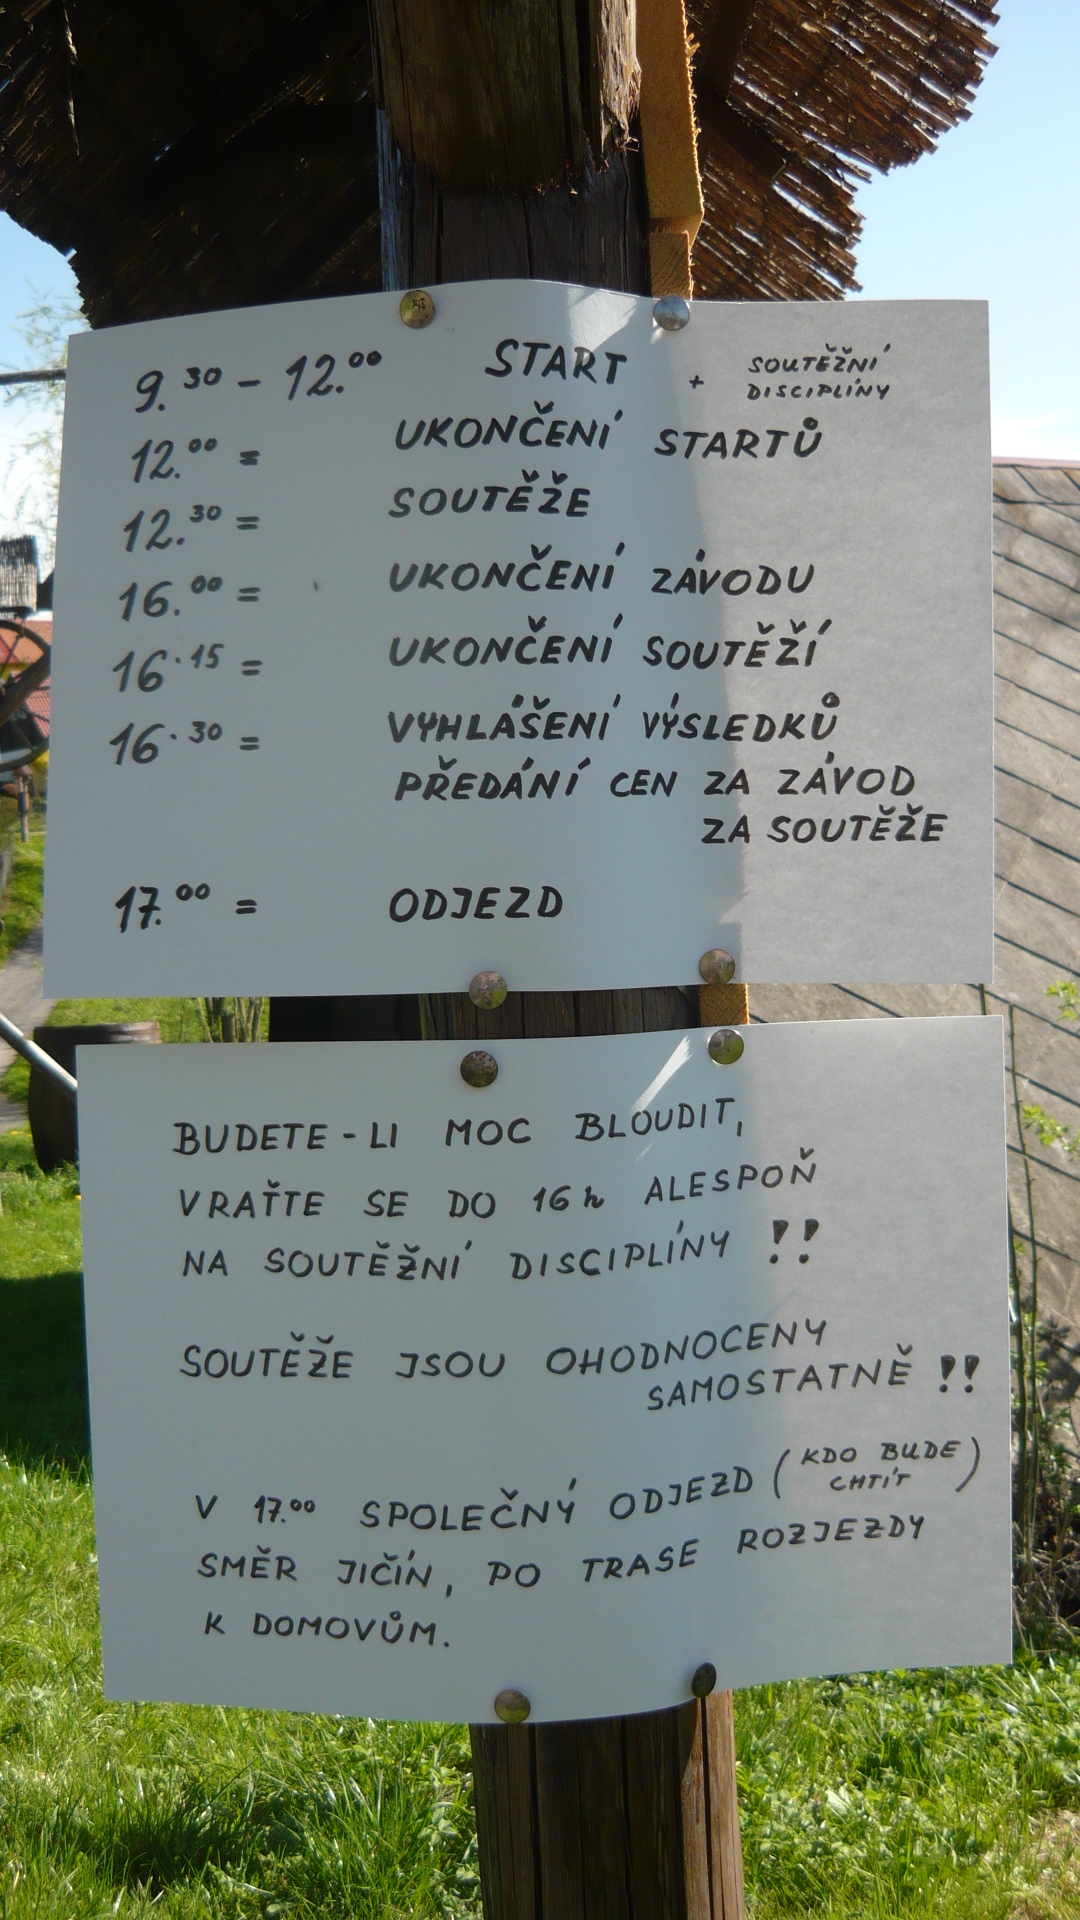 9.30 - 12.00 START + SOUTĚŽNÍ DISCIPLÍNY
12.00 = UKONČENÍ STARTŮ
12.30 = SOUTĚŽE
16.00 = UKONČENÍ ZÁVODU
16.15 = UKONČENÍ SOUTĚŽÍ
16.30 = VYHLÁŠENÍ VÝSLEDKŮ
PŘEDÁNÍ CEN ZA ZÁVOD
ZA SOUTĚŽE
17.00 = ODJEZD
BUDETE-LI MOC BLOUDIT,
VRAŤTE SE DO 16h ALESPOŇ
NA SOUTĚŽNÍ DISCIPLÍNY !!
SOUTĚŽE JSOU OHODNOCENY
SAMOSTATNĚ !!
V 17.00 SPOLEČNÝ ODJEZD (KDO BUDE CHTÍT)
SMĚR JIČÍN, PO TRASE ROZJEZDY
K DOMOVŮM.